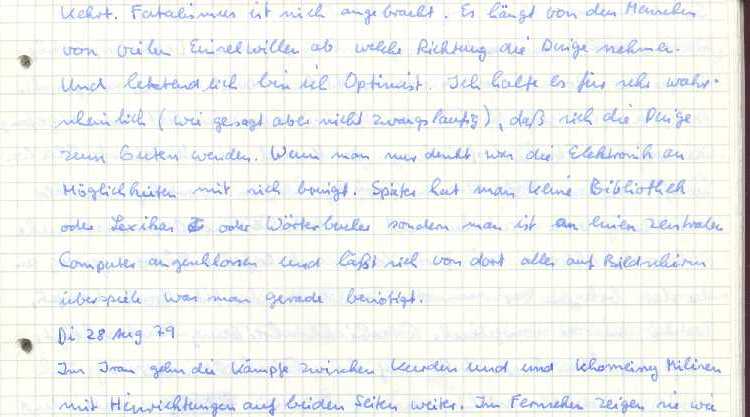 kehrt. Fatalismus ist nicht angebracht. Es hängt von den Menschen
von vielen Einzelwillen ab welche Richtung die Dinge nehmen.
Und letztendlich bin ich Optimist. Ich halte es für sehr wahr-
scheinlich (wie gesagt aber nicht zwangsläufig), daß sich die Dinge
zum Guten wenden. Wenn man nur denkt was die Elektronik an
Möglichkeiten mit sich bringt. Später hat man keine Bibliothek
oder Lexikas oder Wörterbücher sondern man ist an einen zentralen
Computer angeschlossen und läßt sich von dort alles auf Bildschirm
überspieln was man gerade benötigt.
Di 28 Aug 79
Im Iran gehn die Kämpfe zwischen Kurden und und Khomeiny Milizen
mit Hinrichtungen auf beiden Seiten weiter. Im Fernsehen zeigen sie wie